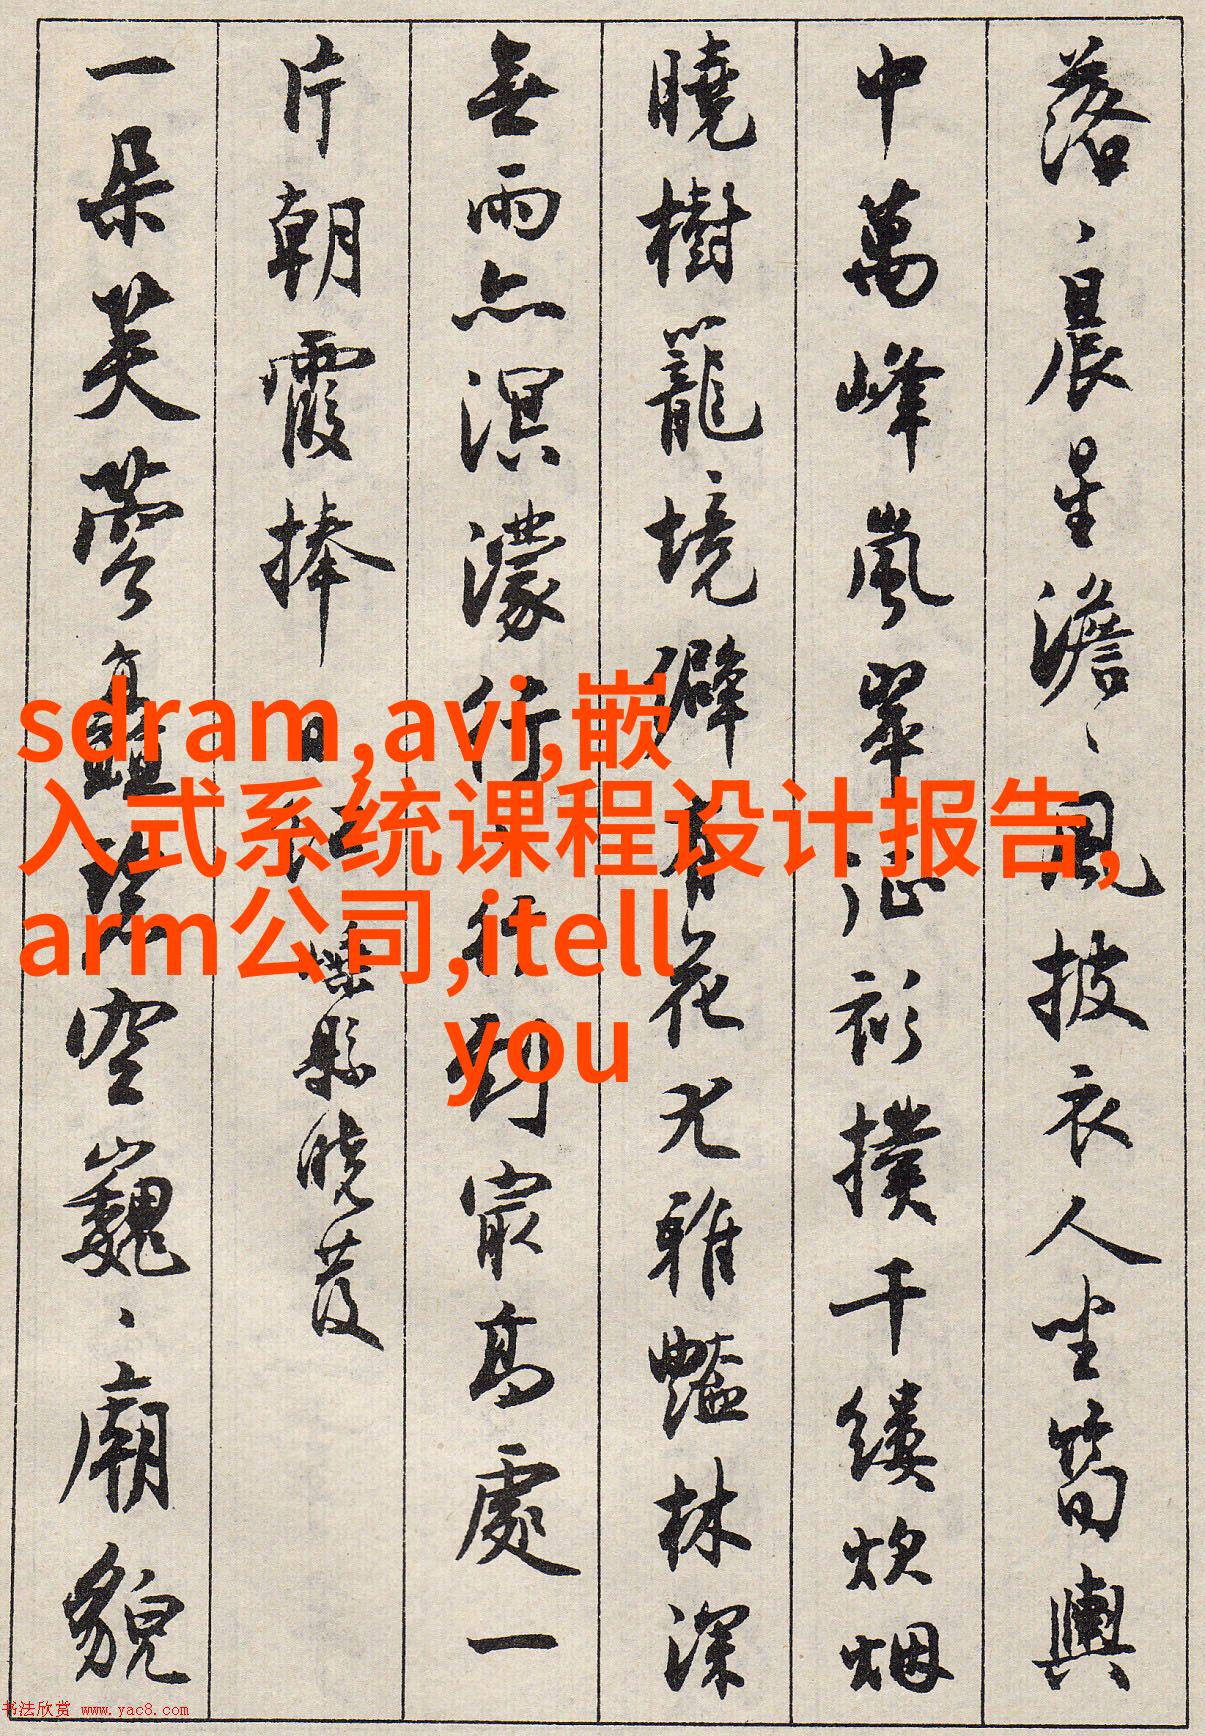 落、晨星澹、風披衣人坐筍輿
中萬峰嵐翠 衫撲千縷炊烟
曉樹籠境僻 花尤雅豔林深
無雨亦溟濛行行 到最高處一
片朝霞捧日 嵊縣曉發
一朵芙蓉矗 空巍、廟貌
sdram,avi,嵌
入式系统课程设计报告,
arm公司,itell
you
书法欣赏 www.yac8.com